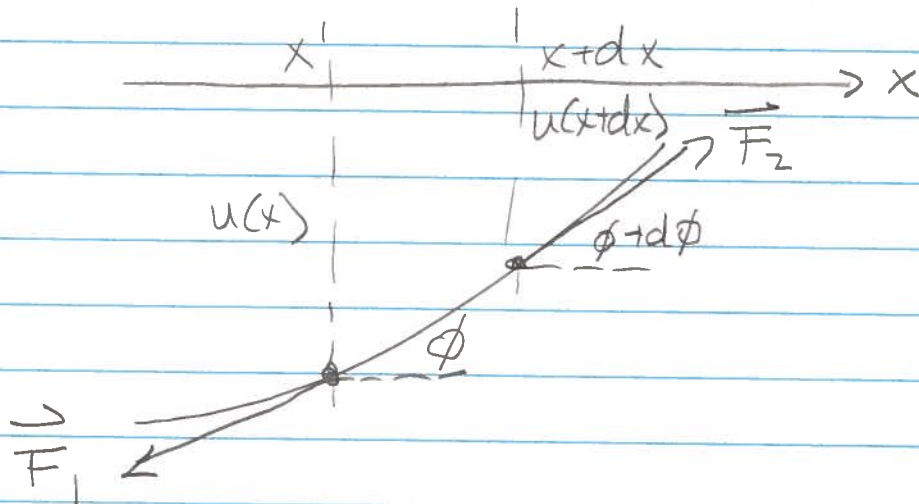 x x+dx x
u(x+dx) F₂
u(x) ϕ+dϕ
ϕ
F₁